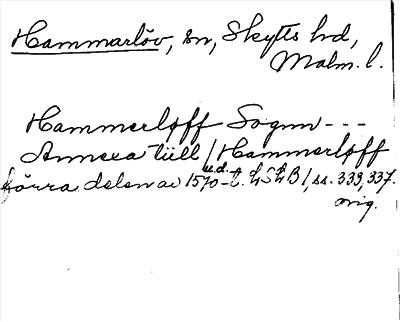 Hammarlöv, sn, Skytts hd,
Malm. l.
Hammerløff Sognn ---
Annexa tiill / Hammerløff
u.d.
förra delen av 1570-t. LSLB 1, ss. 333, 337.
orig.